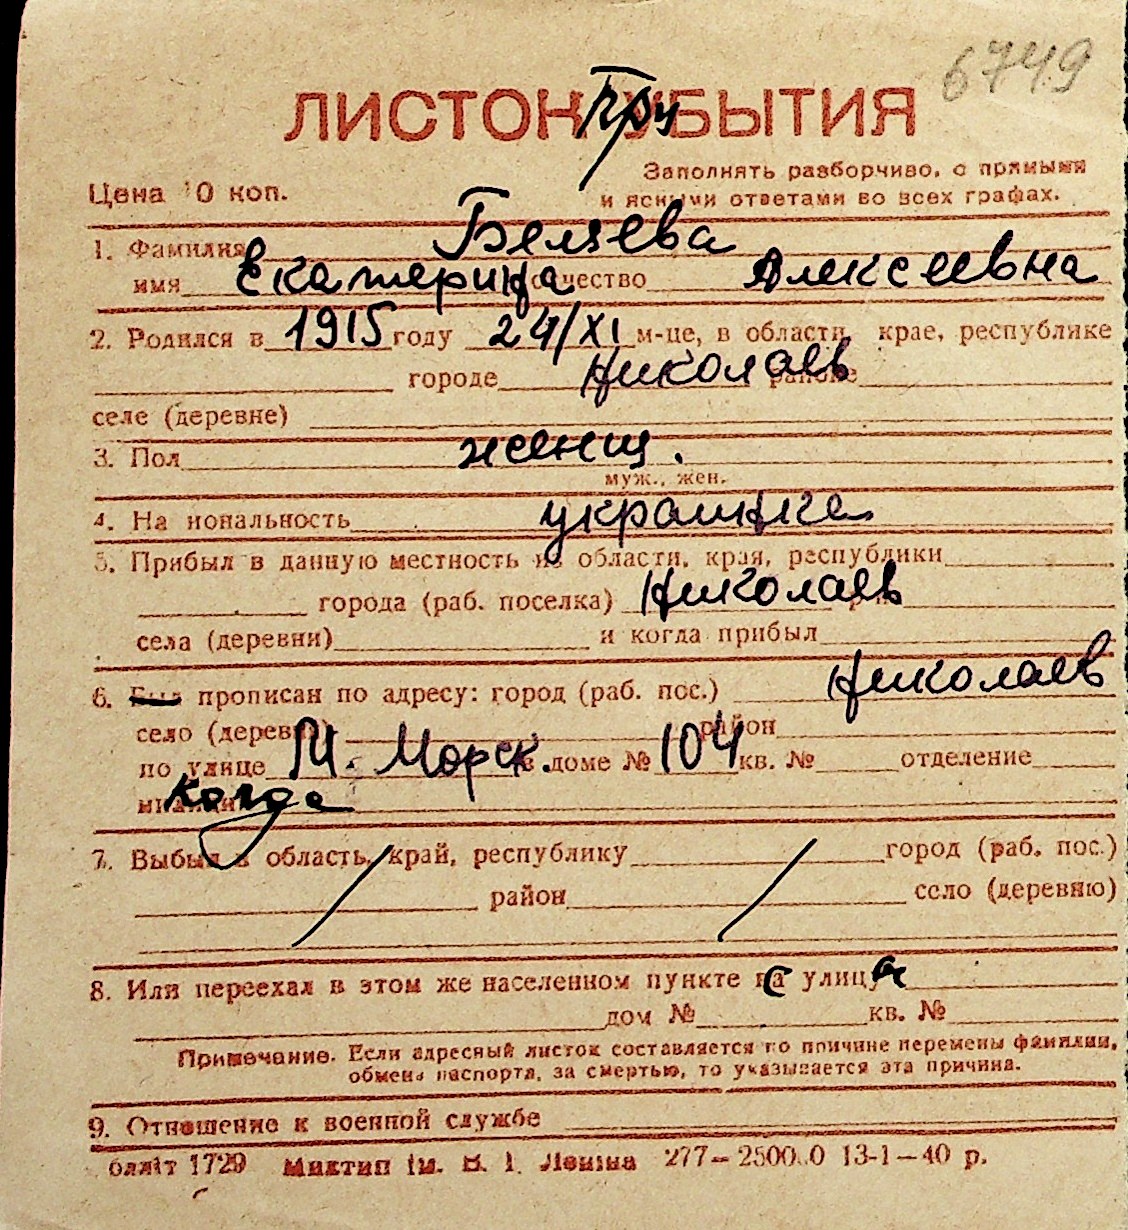 6749
ЛИСТОК При УБЫТИЯ
Заполнять разборчиво, с прямыми
Цена 10 коп.
и ясными ответами во всех графах.
1. Фамилия Беляева
имя Екатерина отчество Алексеевна
2. Родился в 1915 году 24/XI м-це, в области, крае, республике
городе Николаев районе
селе (деревне)
3. Пол женщ.
муж., жен.
4. На иональность украинка
5. Прибыл в данную местность из области, края, республики
города (раб. поселка) Николаев
села (деревни) и когда прибыл
6. Был прописан по адресу: город (раб. пос.) Николаев
село (деревня) район
по улице М. Морск. в доме № 104 кв. № отделение
милиции когда
7. Выбыл в область, край, республику город (раб. пос.)
район село (деревню)
8. Или переехал в этом же населенном пункте с улица
дом № кв. №
Примечание. Если адресный листок составляется по причине перемены фамилии,
обмена паспорта, за смертью, то указывается эта причина.
9. Отношение к военной службе
1729 Миктип ім. В. І. Леніна 277—2500.0 13-1—40 р.